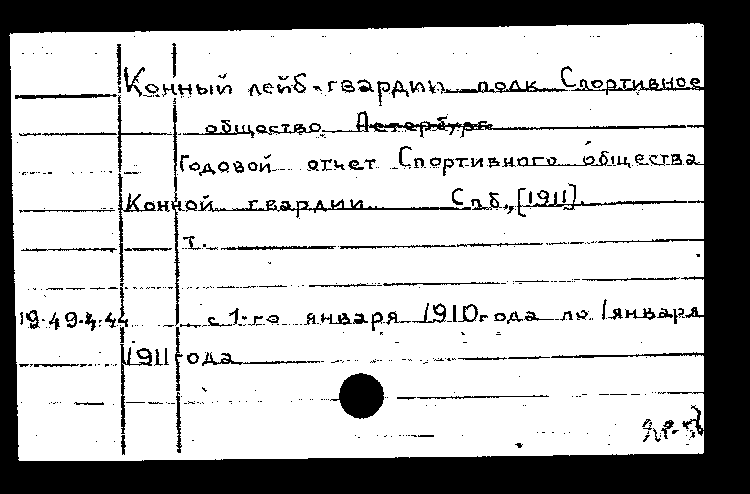 Конный лейб-гвардии полк Спортивное
общество Петербург
Годовой отчет Спортивного общества
Конной гвардии Спб., [1911].
т.
19.49.4.44 с 1-го января 1910 года по 1 января
1911 года